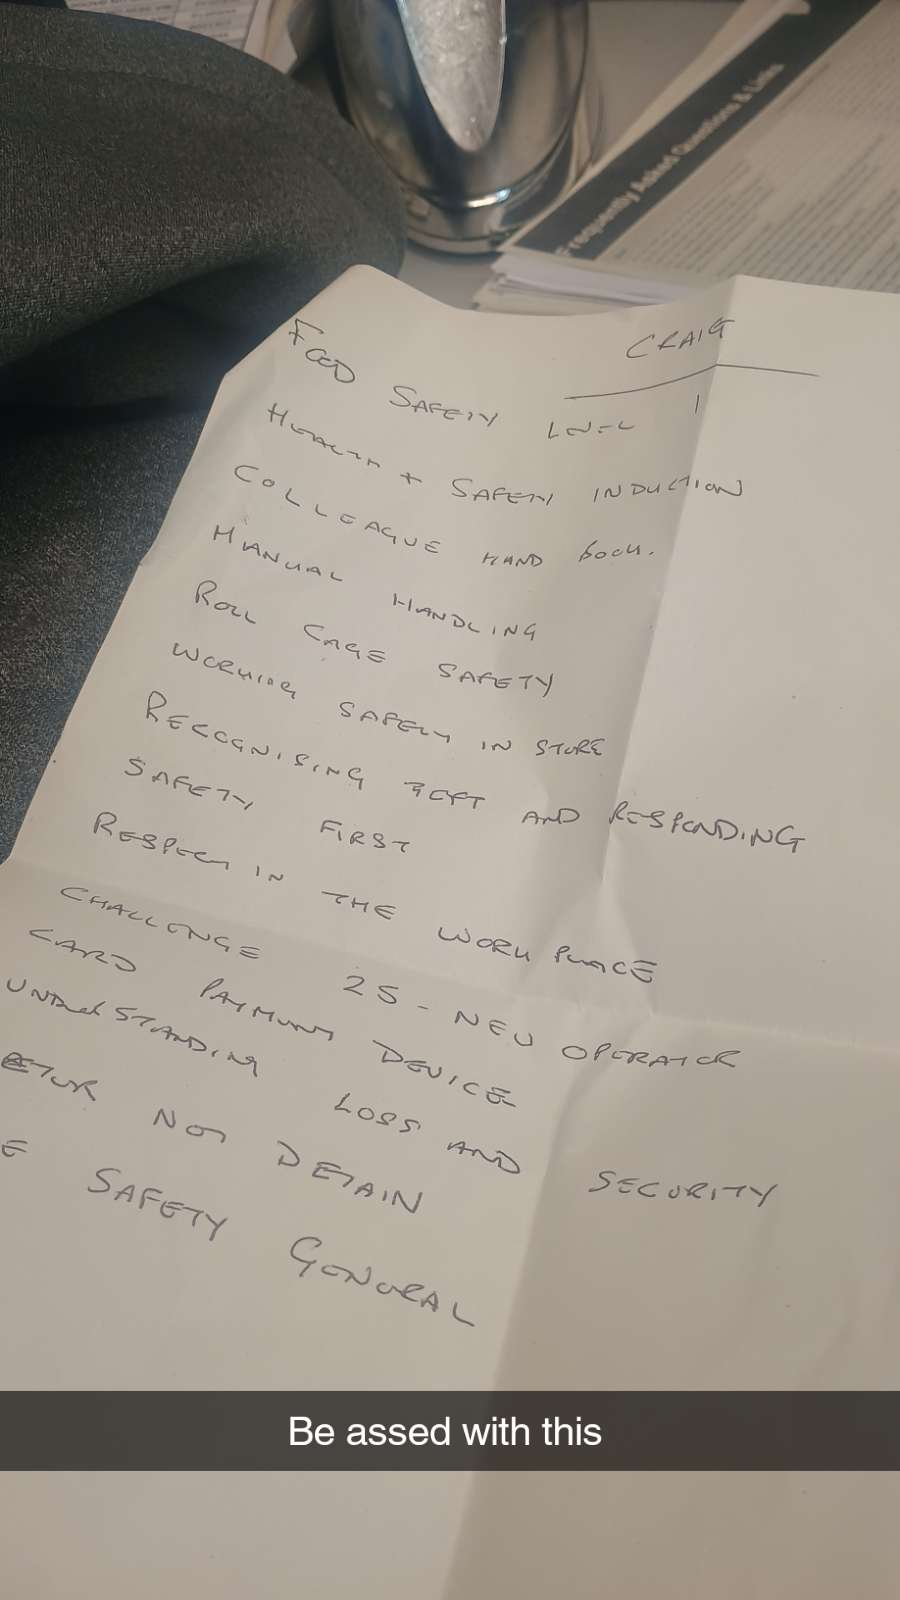 Frequently Asked Questions & Links
CRAIG
FOOD SAFETY LEVEL 1
HEALTH + SAFETY INDUCTION
COLLEAGUE HAND BOOK.
MANUAL HANDLING
ROLL CAGE SAFETY
WORKING SAFELY IN STORE
RECOGNISING THEFT AND RESPONDING
SAFETY FIRST
RESPECT IN THE WORK PLACE
CHALLENGE 25 - NEW OPERATOR
CARD PAYMENT DEVICE
UNDERSTANDING LOSS AND SECURITY
ETUR NOT DETAIN
E SAFETY GENERAL
Be assed with this